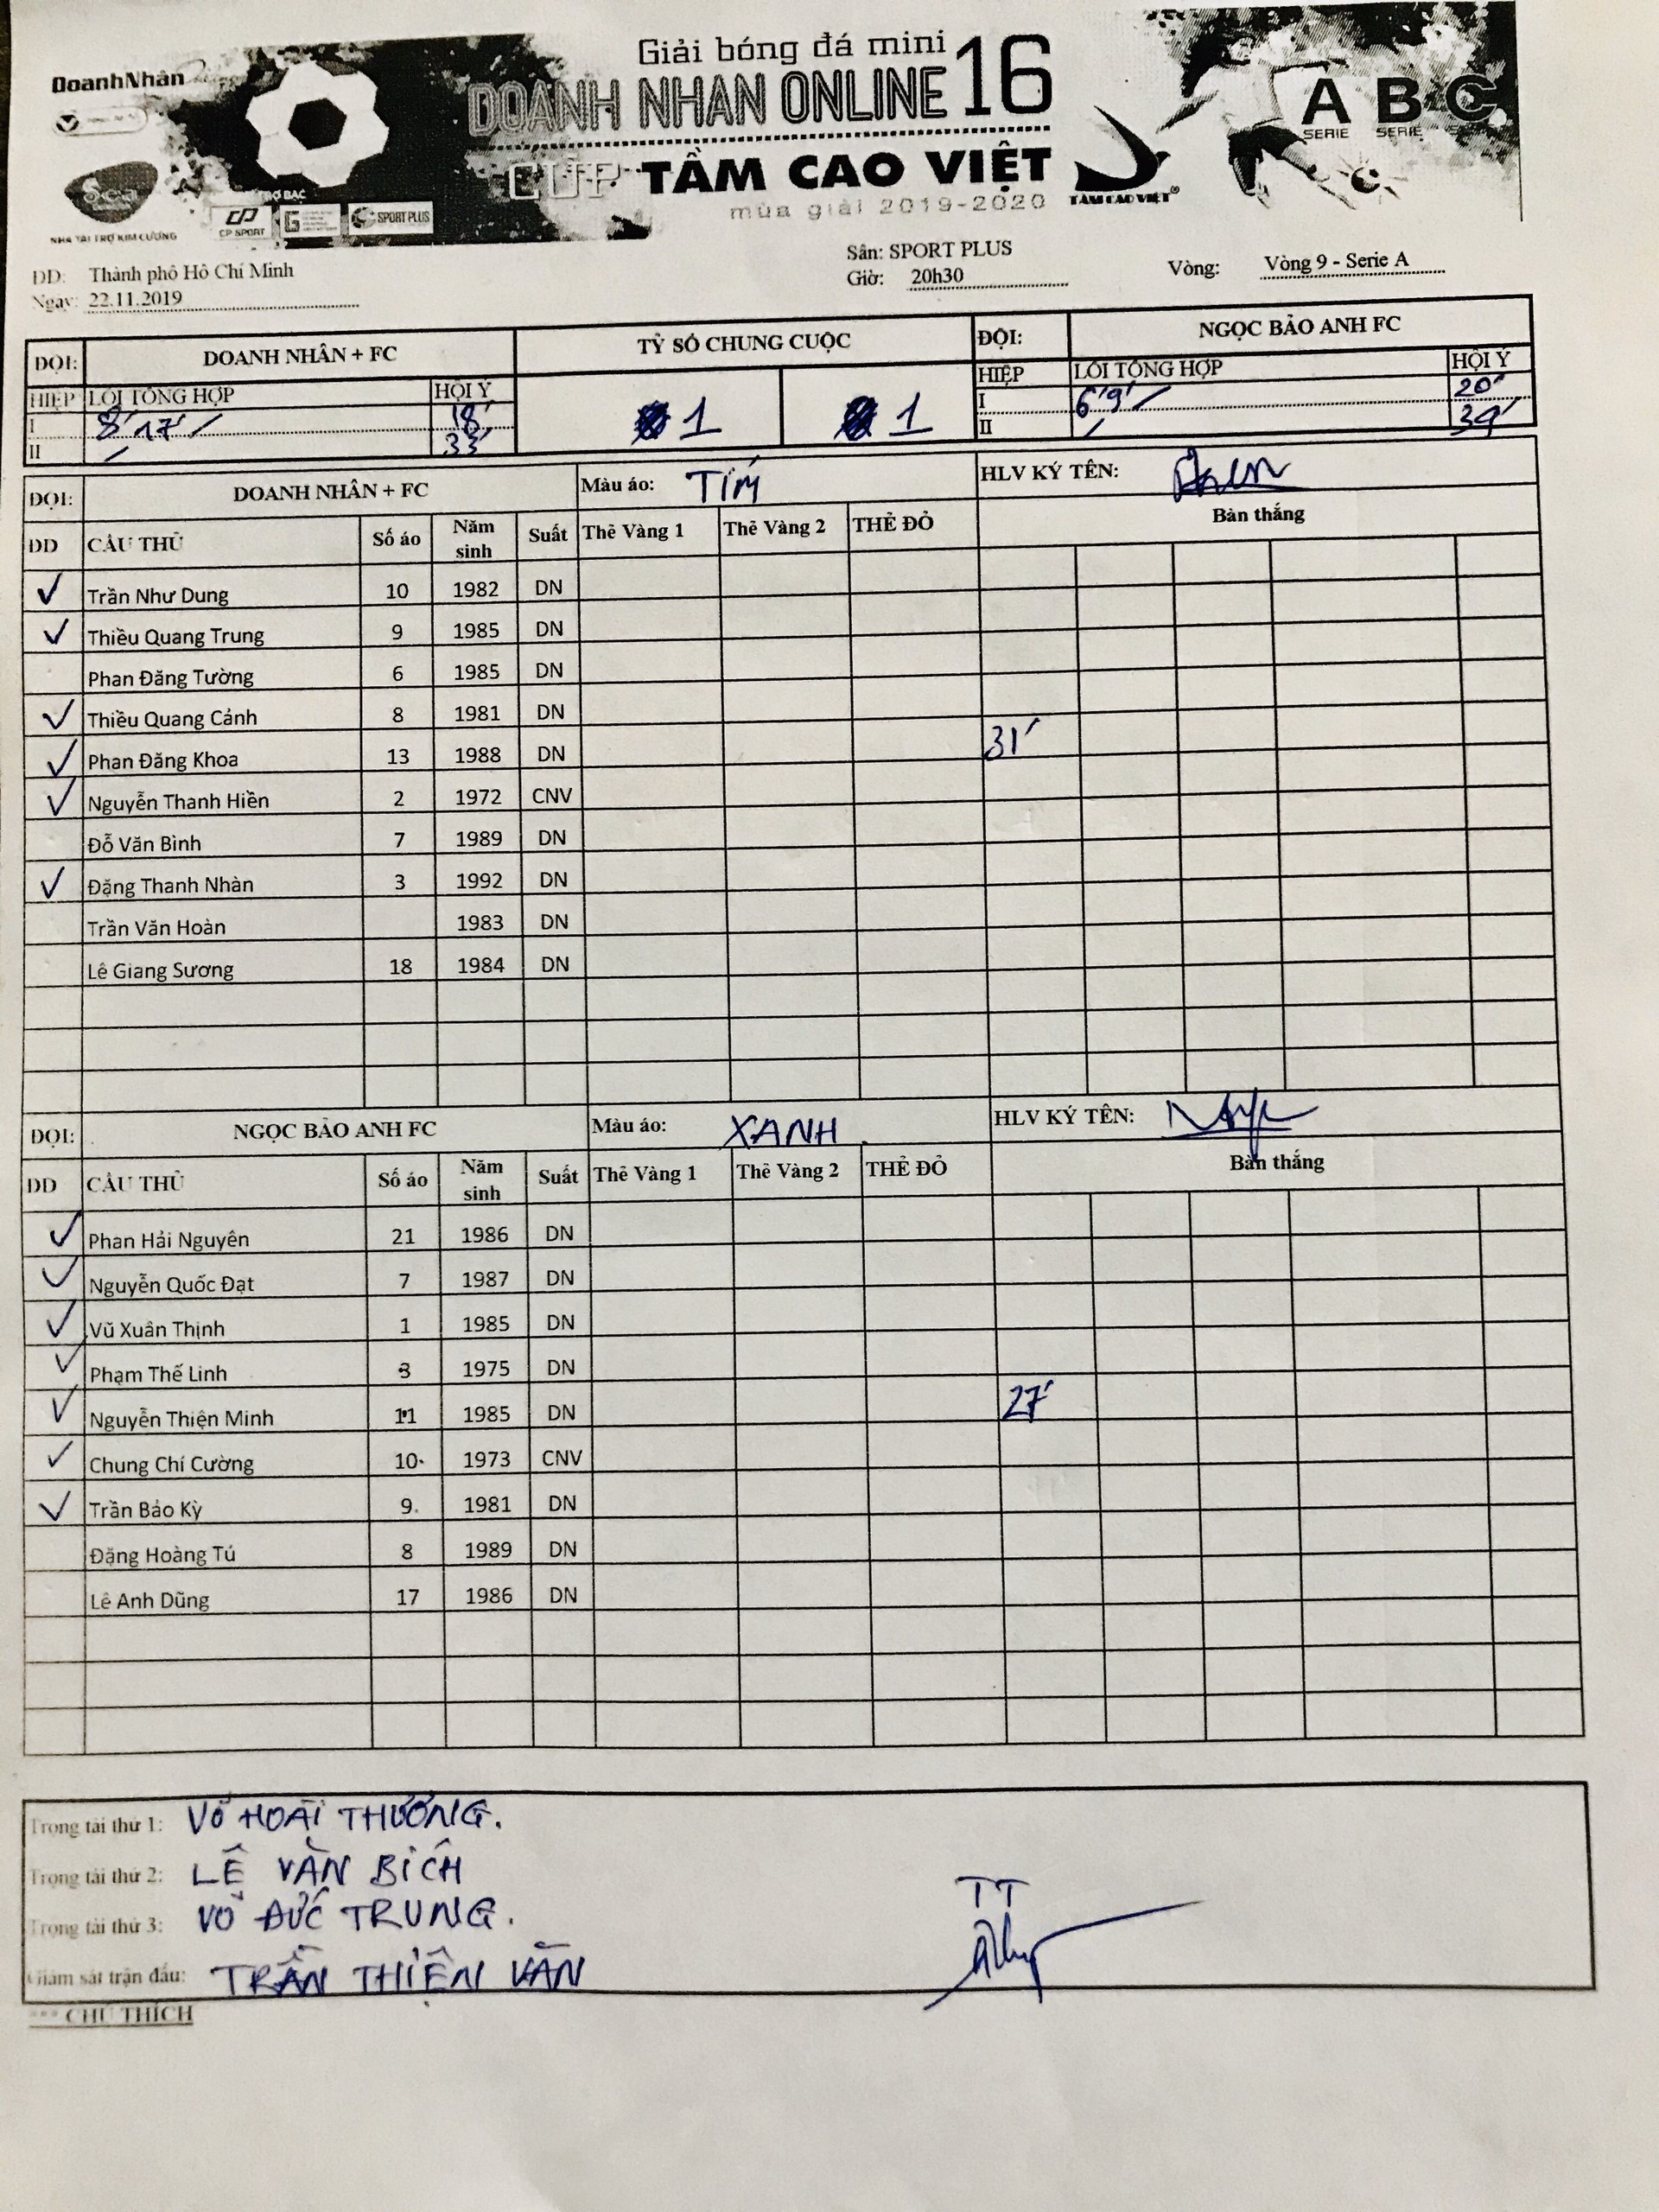 DoanhNhân
Giải bóng đá mini
DOANH NHAN ONLINE 16
CUP TẦM CAO VIỆT
mùa giải 2019-2020
TẦM CAO VIỆT
A B C
SERIE SERIE
CP SPORT
SPORT PLUS
NHÀ TÀI TRỢ KIM CƯƠNG
ĐD: Thành phố Hồ Chí Minh
Sân: SPORT PLUS
Ngày: 22.11.2019
Giờ: 20h30
Vòng: Vòng 9 - Serie A
ĐỘI: DOANH NHÂN + FC TỶ SỐ CHUNG CUỘC ĐỘI: NGỌC BẢO ANH FC
HIỆP LỖI TỔNG HỢP HỘI Ý HIỆP LỖI TỔNG HỢP HỘI Ý
I 8' 17' 18' 1 1 I 6' 9' 20'
II 33' II 39'
ĐỘI: DOANH NHÂN + FC Màu áo: TÍM HLV KÝ TÊN:
DD CẦU THỦ Số áo Năm sinh Suất Thẻ Vàng 1 Thẻ Vàng 2 THẺ ĐỎ Bàn thắng
✓ Trần Như Dung 10 1982 DN
✓ Thiều Quang Trung 9 1985 DN
Phan Đăng Tường 6 1985 DN
✓ Thiều Quang Cảnh 8 1981 DN
✓ Phan Đăng Khoa 13 1988 DN 31'
✓ Nguyễn Thanh Hiền 2 1972 CNV
Đỗ Văn Bình 7 1989 DN
✓ Đặng Thanh Nhàn 3 1992 DN
Trần Văn Hoàn 1983 DN
Lê Giang Sương 18 1984 DN
ĐỘI: NGỌC BẢO ANH FC Màu áo: XANH HLV KÝ TÊN:
DD CẦU THỦ Số áo Năm sinh Suất Thẻ Vàng 1 Thẻ Vàng 2 THẺ ĐỎ Bàn thắng
✓ Phan Hải Nguyên 21 1986 DN
✓ Nguyễn Quốc Đạt 7 1987 DN
✓ Vũ Xuân Thịnh 1 1985 DN
✓ Phạm Thế Linh 3 1975 DN
✓ Nguyễn Thiện Minh 11 1985 DN 27'
✓ Chung Chí Cường 10 1973 CNV
✓ Trần Bảo Kỳ 9 1981 DN
Đặng Hoàng Tú 8 1989 DN
Lê Anh Dũng 17 1986 DN
Trọng tài thứ 1: VÕ HOÀI THƯƠNG.
Trọng tài thứ 2: LÊ VĂN BÍCH
Trọng tài thứ 3: VÕ ĐỨC TRUNG.
TT
Giám sát trận đấu: TRẦN THIỆN VĂN
*** CHÚ THÍCH